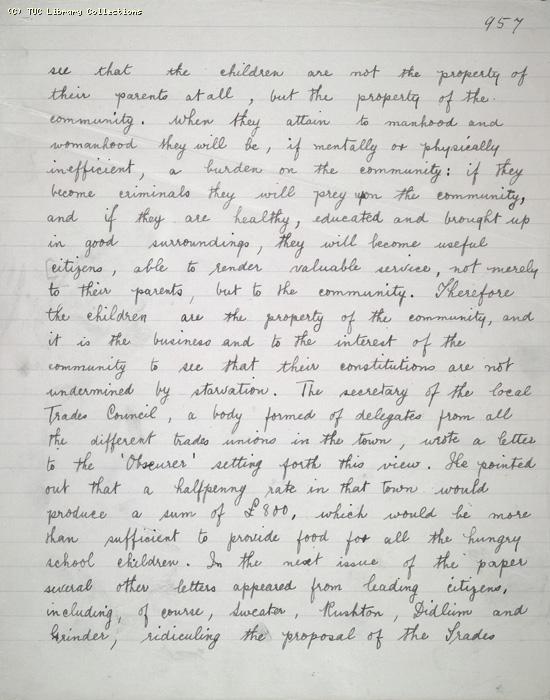 (C) TUC Library Collections
957
see that the children are not the property of
their parents at all, but the property of the
community. When they attain to manhood and
womanhood they will be, if mentally or physically
inefficient, a burden on the community: if they
become criminals they will prey upon the community,
and if they are healthy, educated and brought up
in good surroundings, they will become useful
citizens, able to render valuable service, not merely
to their parents, but to the community. Therefore
the children are the property of the community, and
it is the business and to the interest of the
community to see that their constitutions are not
undermined by starvation. The secretary of the local
Trades Council, a body formed of delegates from all
the different trades unions in the town, wrote a letter
to the 'Obscurer' setting forth this view. He pointed
out that a halfpenny rate in that town would
produce a sum of £800, which would be more
than sufficient to provide food for all the hungry
school children. In the next issue of the paper
several other letters appeared from leading citizens,
including, of course, Sweater, Rushton, Didlum and
Grinder, ridiculing the proposal of the Trades